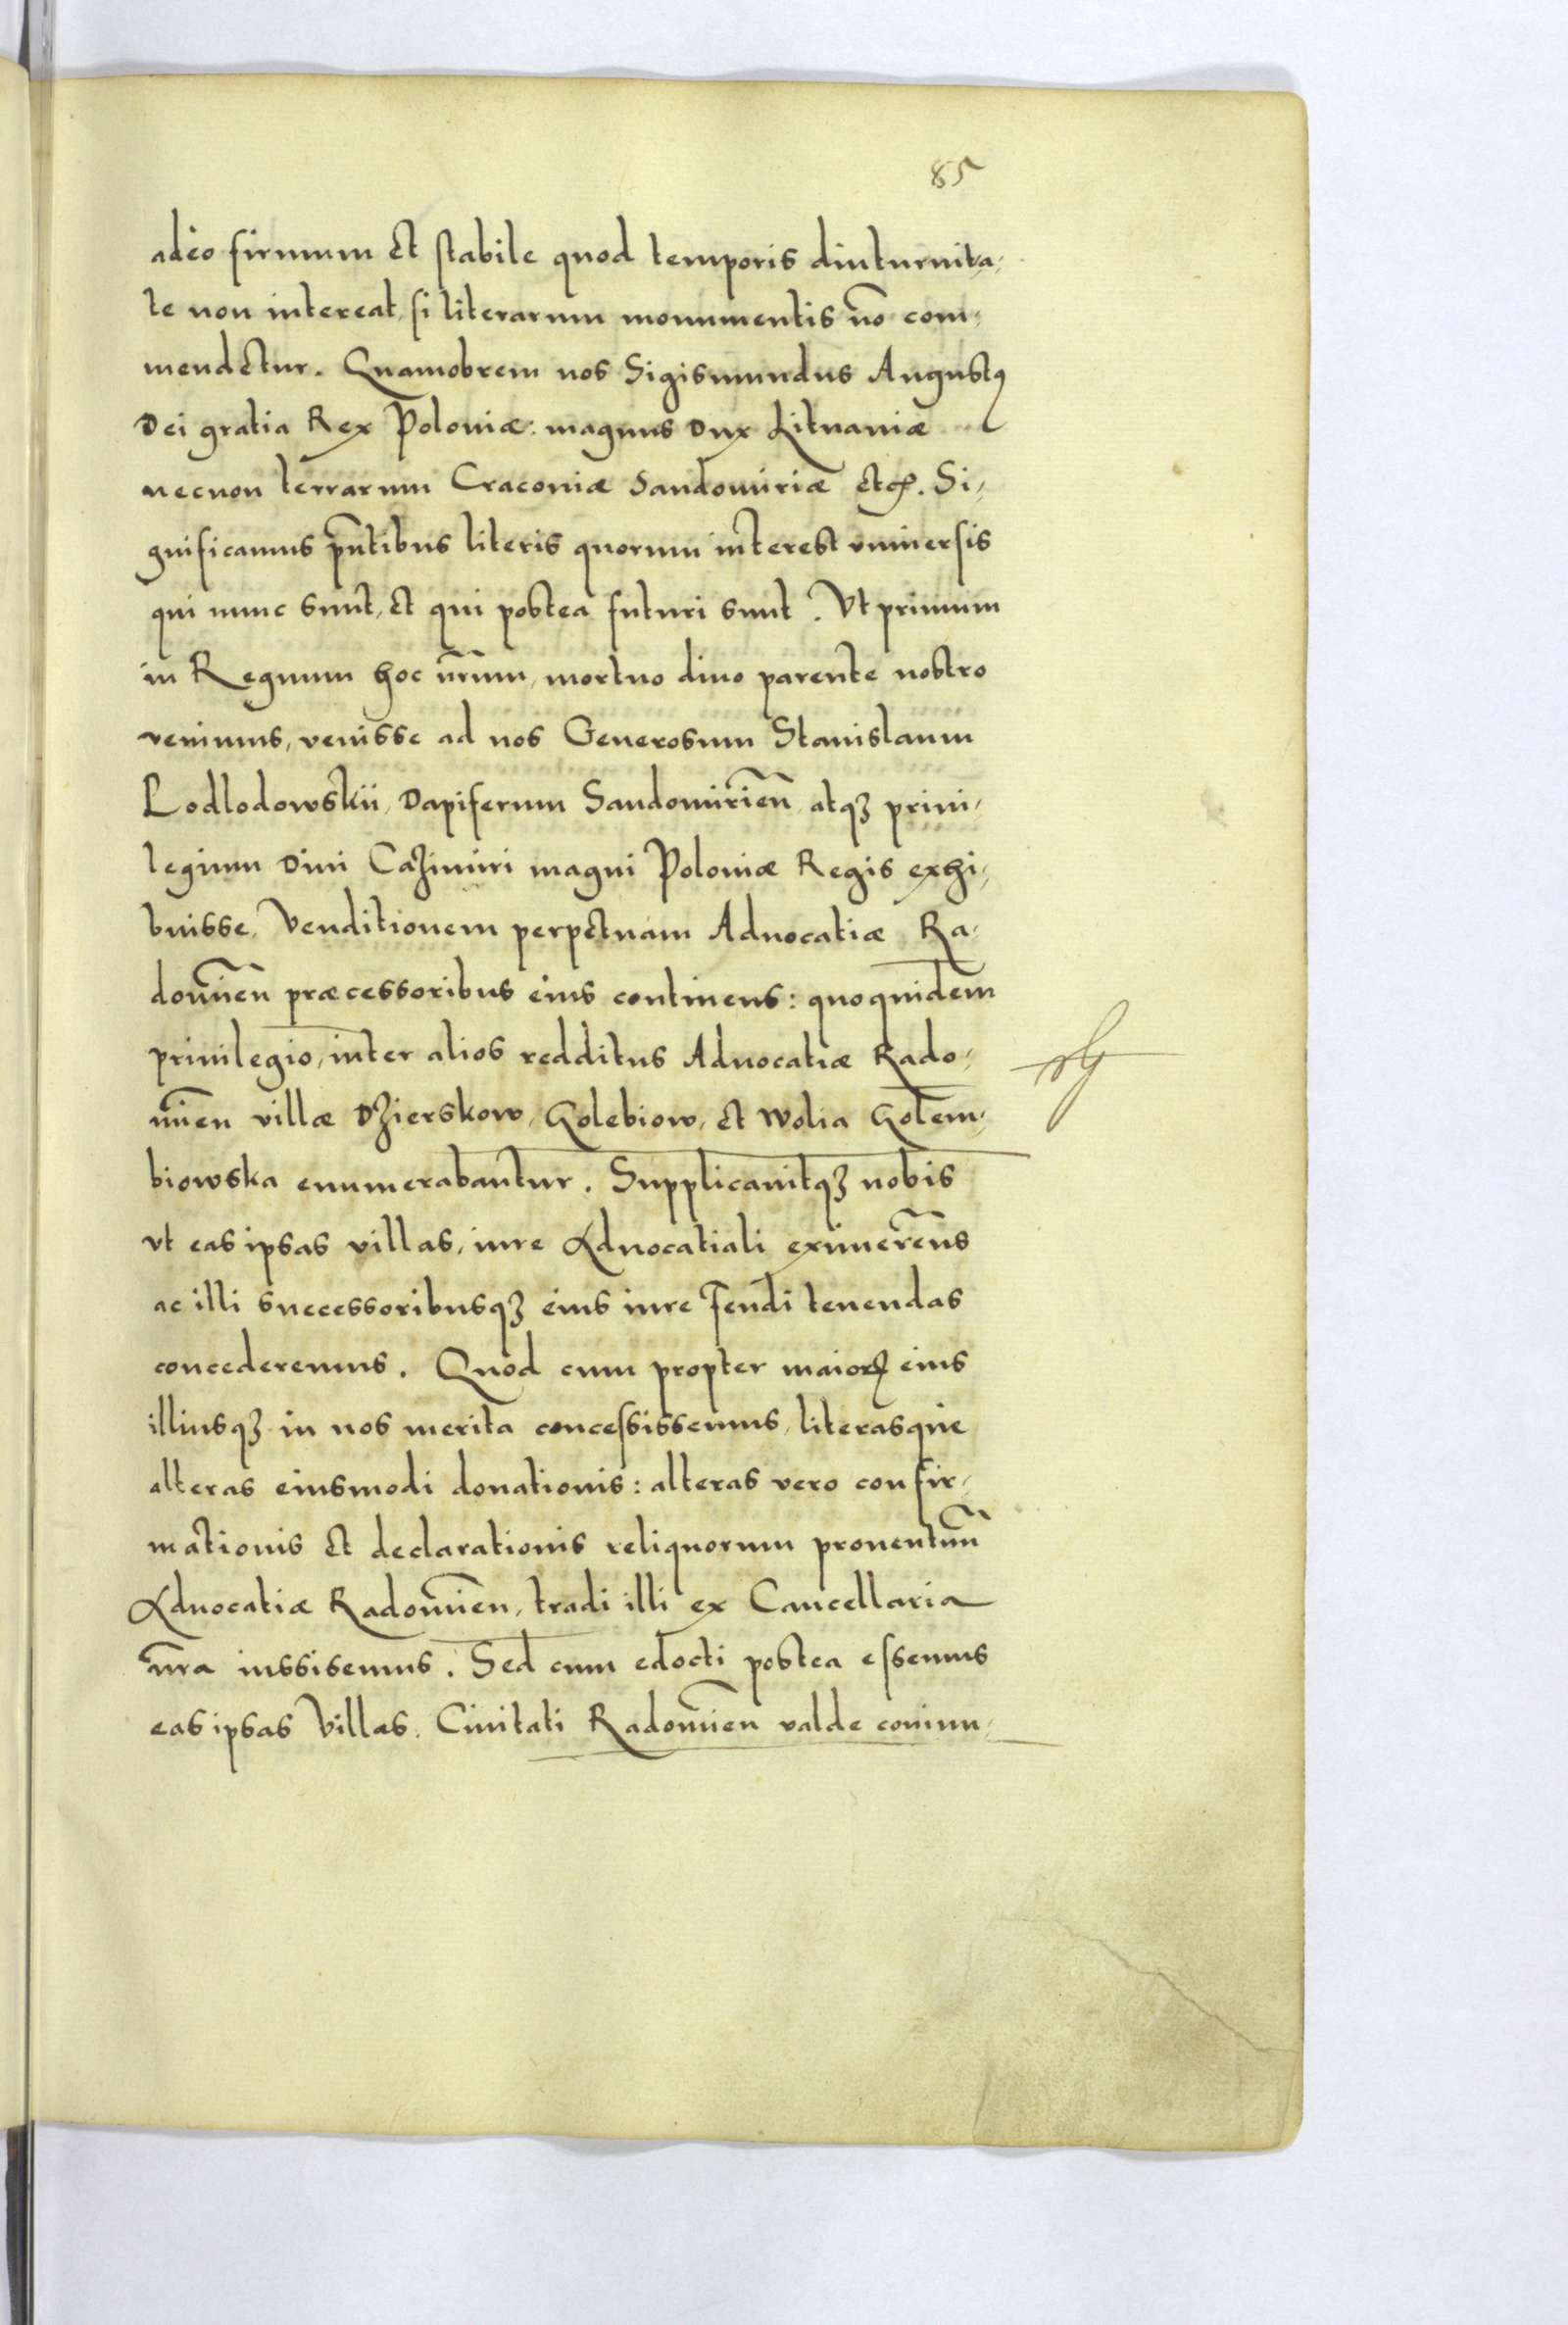 85
adeo firmum et stabile quod temporis diuturnita-
te non intereat, si literarum monumentis nō com-
mendetur. Quamobrem nos Sigismundus Augustꝰ
Dei gratia Rex Poloniæ: magnus Dux Lituaniæ
necnon terrarum Cracoviæ Sandomiriæ etc. Si-
gnificamus pn̄tibus literis quorum interest universis
qui nunc sunt, et qui postea futuri sunt. Ut primum
in Regnum hoc nr̄um, mortuo divo parente nostro
venimus, venisse ad nos Generosum Stanislaum
Lodlodowskii, Dapiferum Sandomirien̄, atqꝫ privi-
legium Divi Cazimiri magni Poloniæ Regis exhi-
buisse, Venditionem perpetuam Advocatiæ Ra-
domien̄ præcessoribus eius continens: quo quidem
privilegio, inter alios redditus Advocatiæ Rado-
mien̄ villæ Dzierskow, Golebiow, et Wolia Golem-
biowska enumerabantur. Supplicavitqꝫ nobis
ut eas ipsas villas, iure Advocatiali eximerem̄us
ac illi successoribusqꝫ eius iure Feudi tenendas
concederemus. Quod cum propter maioꝝ eius
illiusqꝫ in nos merita concessissemus, literasque
alteras eiusmodi donationis: alteras vero confir-
mationis et declarationis reliquorum proventuum̄
Advocatiæ Radomien̄, tradi illi ex Cancellaria
nr̄a iussisemus. Sed cum edocti postea essemus
eas ipsas Villas, Civitati Radomien̄ valde coniun-